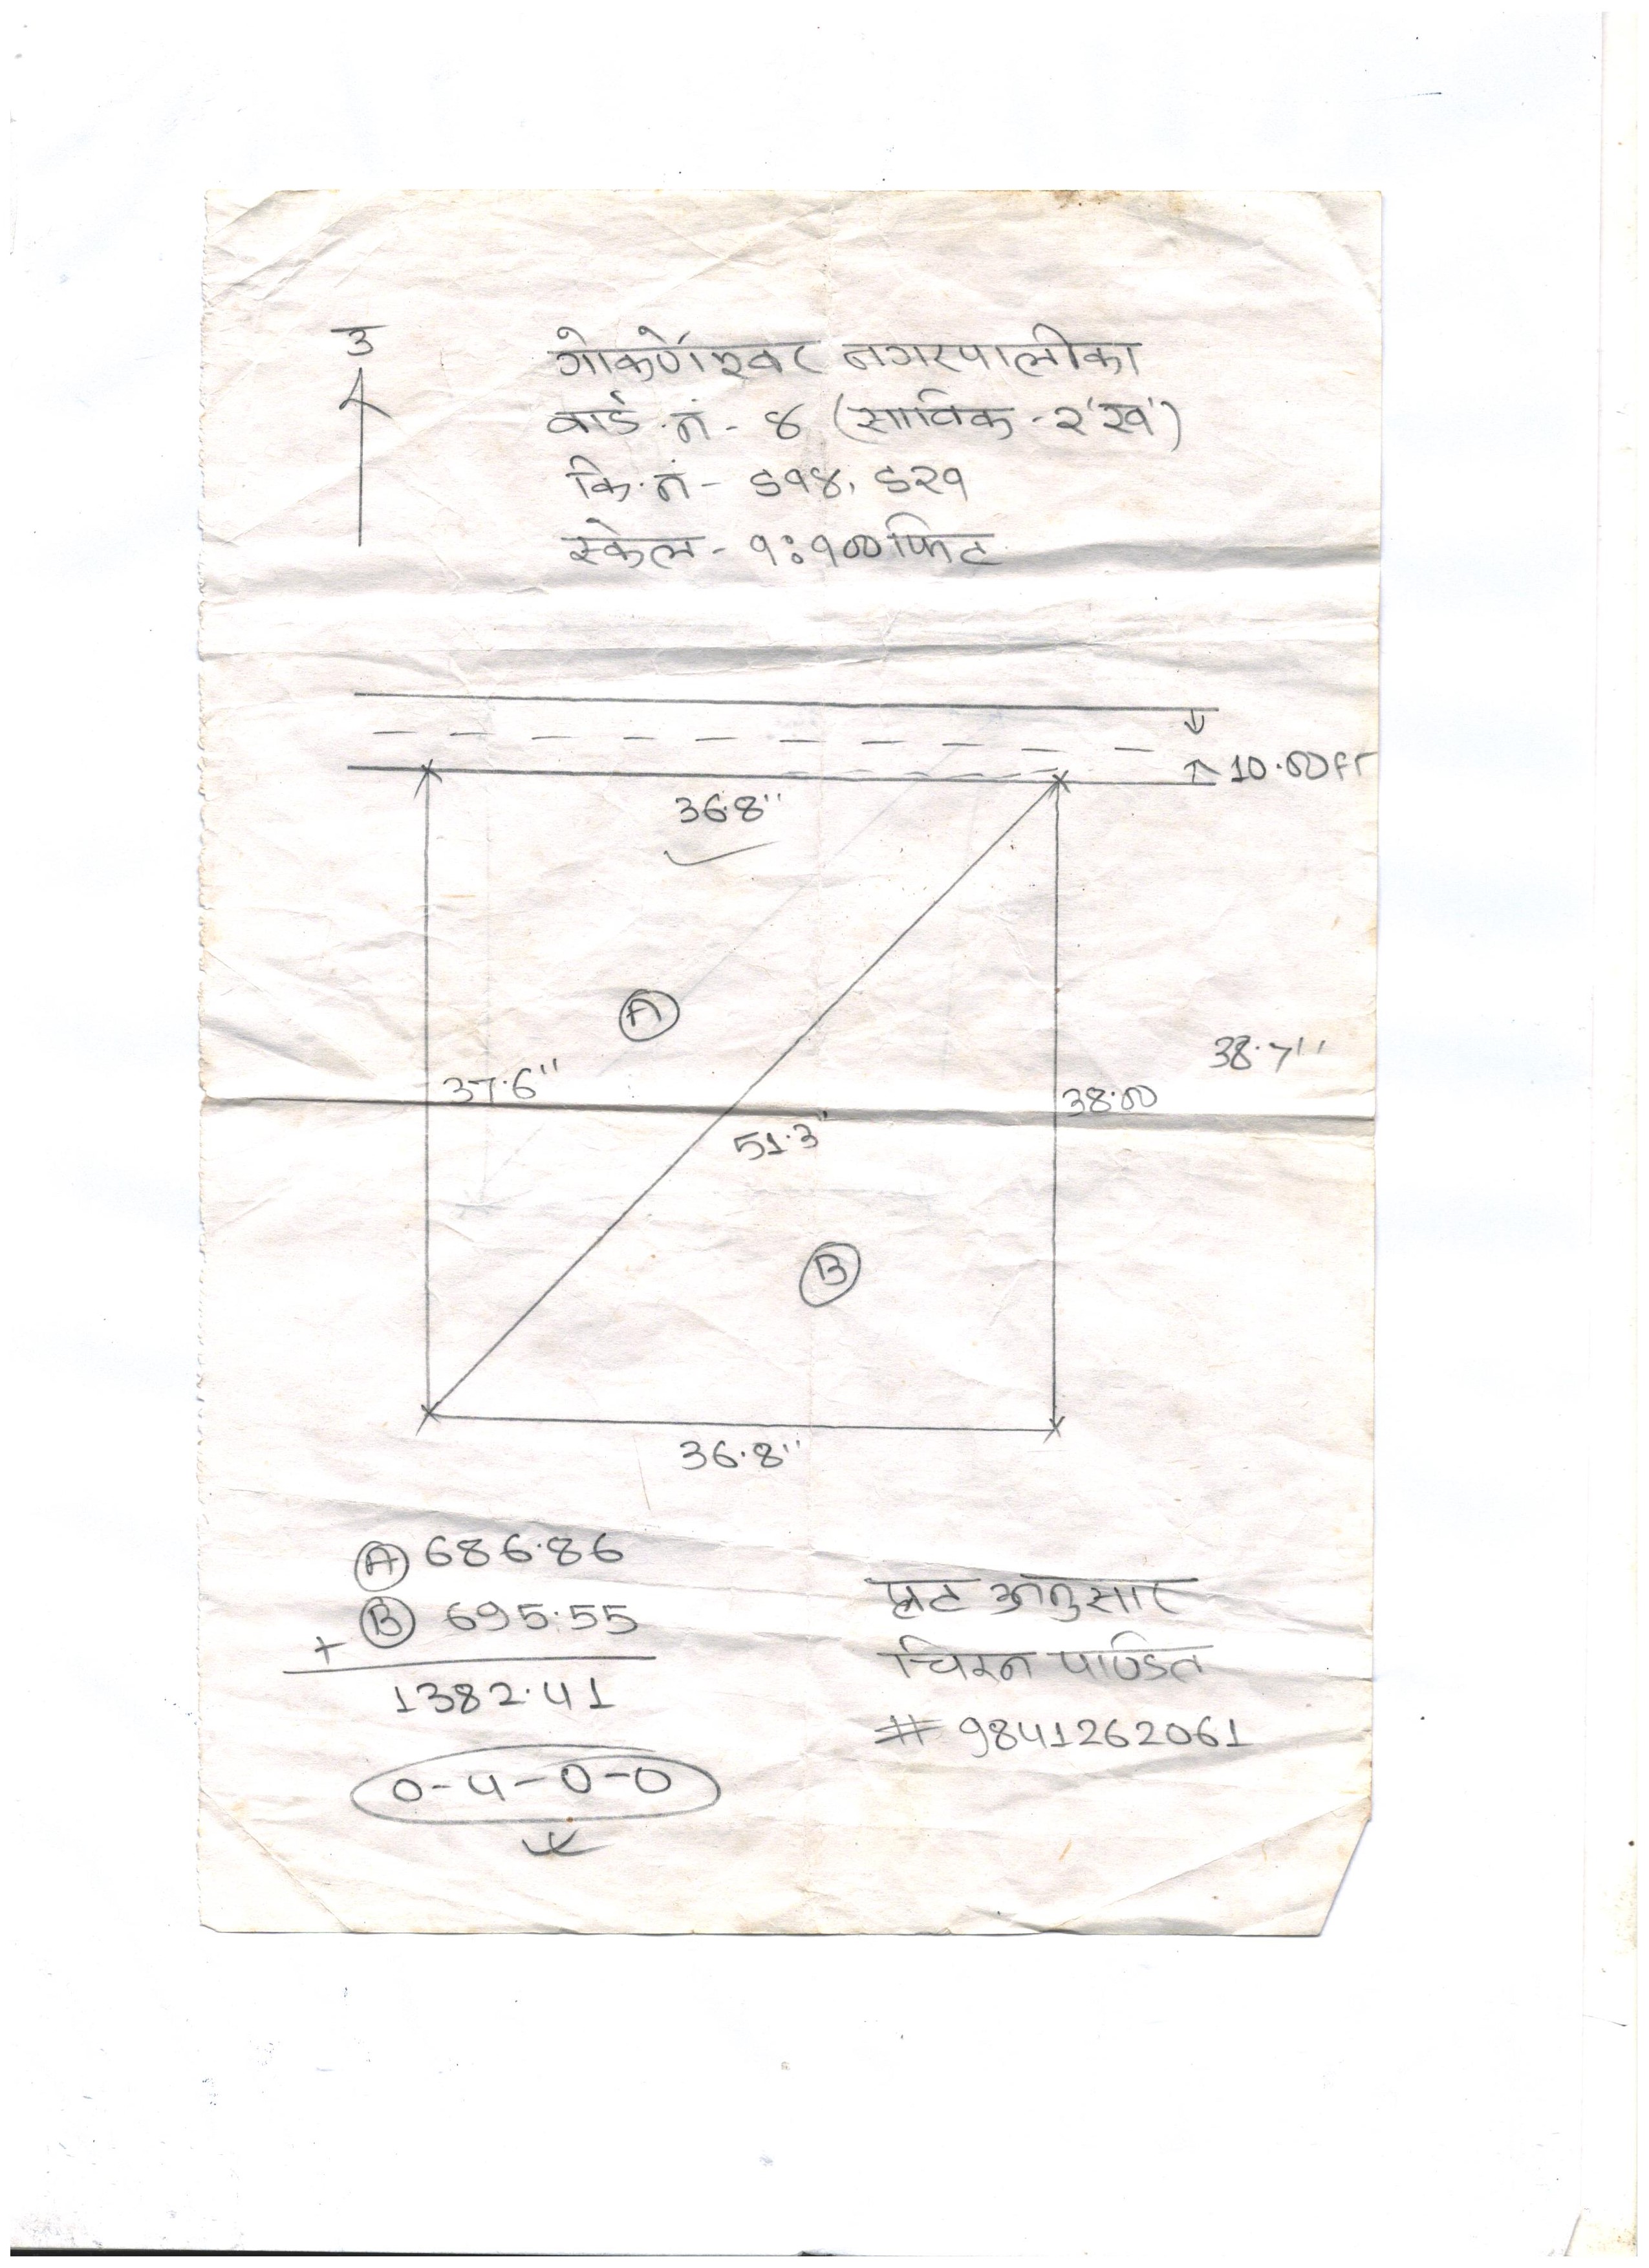 उ
गोकर्णेश्वर नगरपालीका
वार्ड नं - ४ (साविक - २'ख')
कि.नं - ६१४, ६२१
स्केल - १ : १०० फिट
10.00 ft
36.8"
A
38.7"
37.6"
38.00
51.3"
B
36.8"
A 686.86
B 695.55
+
1382.41
0-4-0-0
प्लट अनुसार
चिरन पाण्डित
# 9841262061